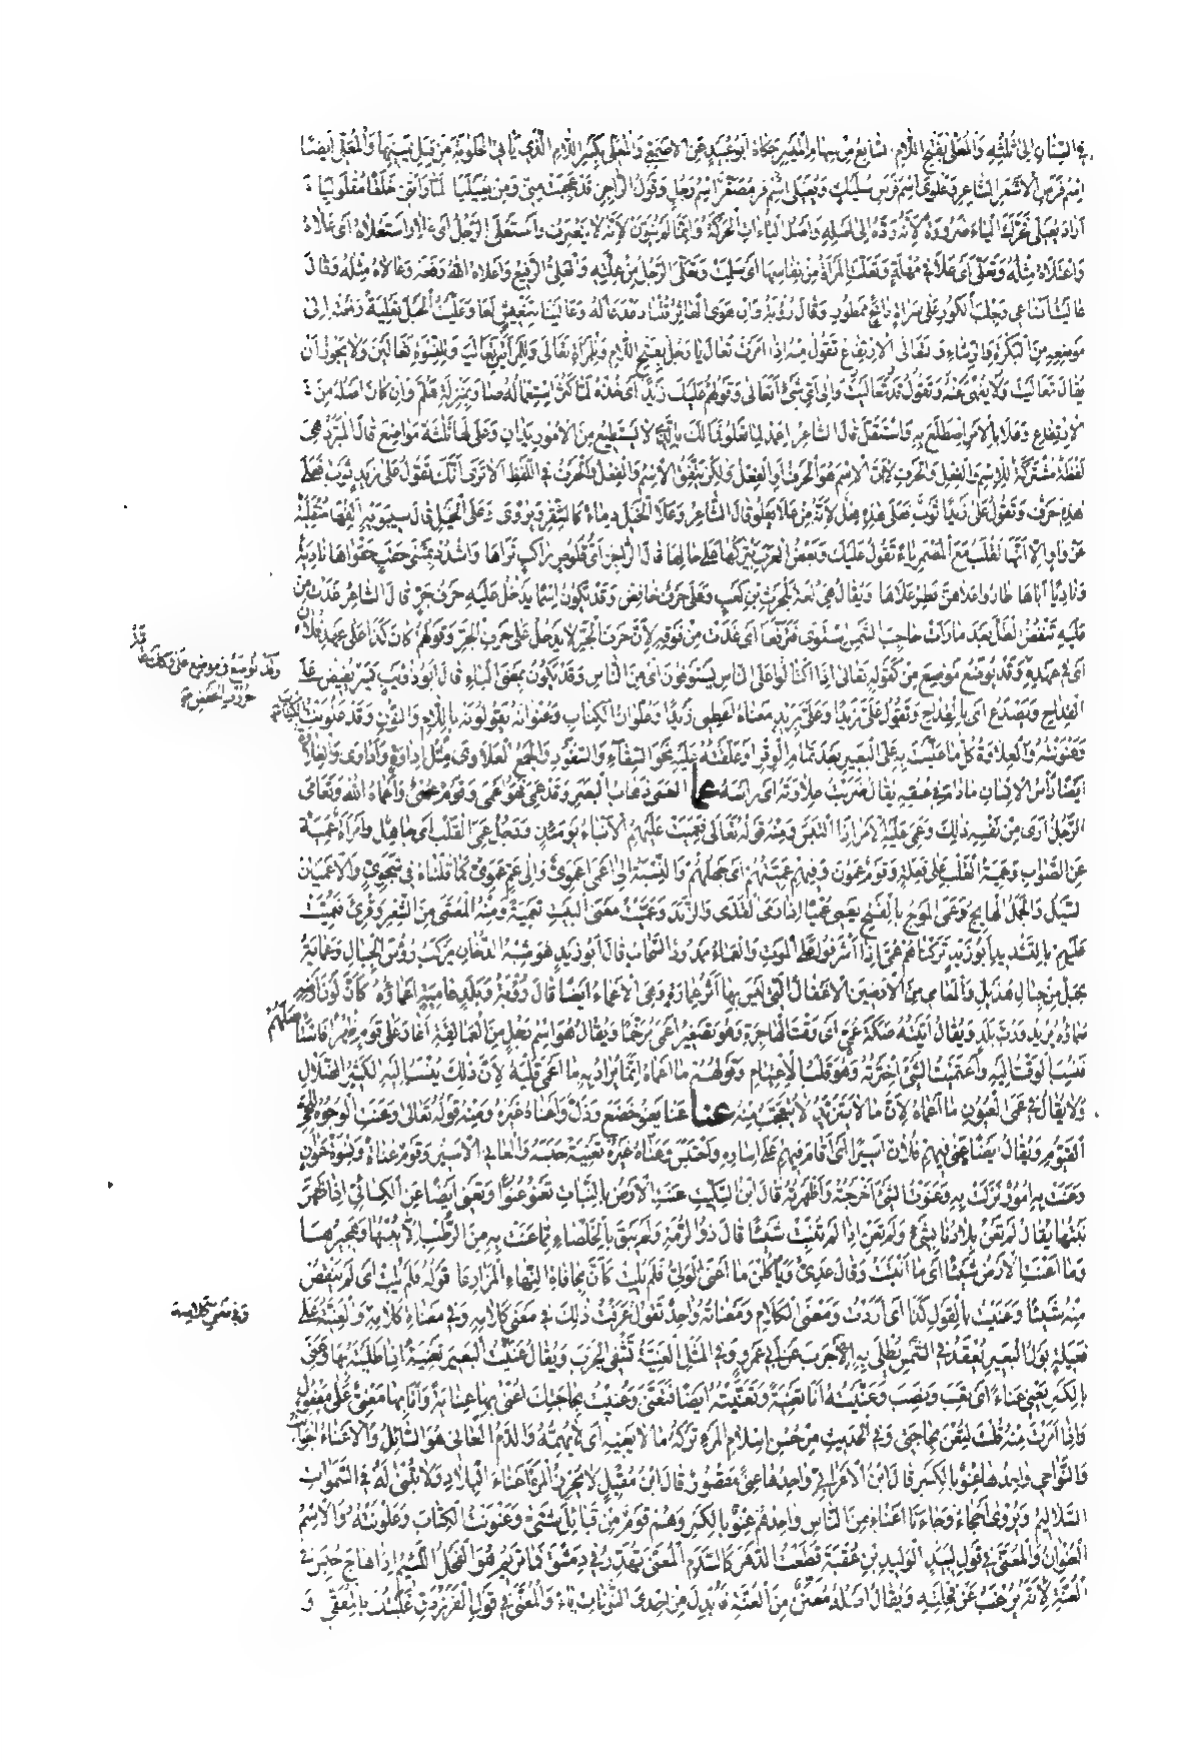 في السنان الى ثلثه والمعلى بفتح اللام السابع من سهام الميسر حكاه ابو عبيد عن الاصمعي والمعلي بكسر اللام الذي ياتي الحلوبة من قبل يمينها والمعلى ايضا
اسم فرس الاشعر الشاعر وعلوى اسم فرس سليك ويعيلى اسم مصغر اسم رجل وقول الراجز قد عجبت مني ومن يعيليا لما راتني خلقا مقلوليا
اراد يعيلي فحرك الياء ضرورة لانه رده الى اصله واصل الياءات الحركة وانما لم ينون لانه لا ينصرف واستعلى الرجل اي علا واستعلاه اي علاه
واعتلاه مثله وتعلى اي علا في مهلة وتعلت المراة من نفاسها اي سلمت وتعلى الرجل من علته والعلي الرفيع واعلاه الله رفعه وعالاه مثله وقال
عاليت انساعي وجلب الكور على سراة رائح ممطور وقال رؤبة وان هوى العاثر قلنا دعدعا له وعالينا بتنعيش لعا وعليت الحبل تعلية رفعته الى
موضعه من البكرة والرشاء و تعالى الارتفاع تقول منه اذا امرت تعال يا رجل بفتح اللام وللمراة تعالي وللمراتين تعاليا وللنسوة تعالين ولا يجوز ان
يقال تعاليت ولا ينهى عنه وتقول قد تعاليت والى اي شيء اتعالى وقولهم عليك زيدا اي خذه لما كثر استعماله صار بمنزلة هلم وان كان اصله من
الارتفاع وعلا بالامر اضطلع به واستقل قال الشاعر اعمد لما تعلو فما لك بالذي لا تستطيع من الامور يدان وعلى لها ثلثة مواضع قال المبرد هي
لفظة مشتركة للاسم والفعل والحرف لان الاسم هو الحرف او الفعل ولكن يتفق الاسم والفعل والحرف في اللفظ الا ترى انك تقول على زيد ثوب فعلى
هذه حرف وتقول علا زيدا ثوب فعلى هذه فعل لانه من علا يعلو قال الشاعر وعلا الخيل دماء كالشقر ويروى وعلى الخيل قال سيبويه الفها منقلبة
عن واو الا انها تقلب مع المضمر ياء تقول عليك وبعض العرب يتركها على حالها قال الراجز اي قلوص راكب تراها واشدد بمثنى حقب حقواها نادية
وناديا اباها طاروا علاهن فطر علاها ويقال هي لغة بلحرث بن كعب وعلى حرف خافض وقد تكون اسما يدخل عليه حرف جر قال الشاعر غدت من
عليه تنفض الطل بعد ما رات حاجب الشمس استوى فترفعا اي غدت من فوقه لان حرف الجر لا يدخل على حرف الجر وقولهم كان كذا على عهد فلان
اي في عهده وقد توضع موضع من كقوله تعالى اذا اكتالوا على الناس يستوفون اي من الناس وقد تكون بمعنى الباء قال ابو ذؤيب يسر يفيض على
القداح ويصدع اي بالقداح وتقول علي زيدا وعلي بزيد معناه اعطني زيدا وعلوان الكتاب وعنوانه يقولونه باللام والنون وقد علونت الكتاب
وعنونته والعلاوة كل ما عليت به على البعير بعد تمام الوقر او علقته عليه نحو السقاء والسفود والجمع العلاوى مثل اداوة واداوى والعلاوة
ايضا راس الانسان ما دام في عنقه يقال ضربت علاوته اي راسه عما العمى ذهاب البصر وقد عمي فهو اعمى وقوم عمي واعماه الله وتعامى
الرجل ارى من نفسه ذلك وعمي عليه الامر اذا التبس ومنه قوله تعالى فعميت عليهم الانباء يومئذ ورجل عمي القلب اي جاهل وامراة عمية
عن الصواب وعمية القلب على فعلة وقوم عمون وفيهم عميتهم اي جهلهم والنسبة الى اعمى اعموي والى عم عموي كما قلناه في شجوي والاعميان
السيل والجمل الهائج وعمى الموج بالفتح يعمي عميا اذا رمى القذى والزبد وعميت معنى البيت تعمية ومنه المعمى من الشعر وقرئ فعميت
عليهم بالتشديد ابو زيد تركناهم عمى اذا اشرفوا على الموت والعماء ممدود السحاب قال ابو زيد هو شبه الدخان يركب رؤس الجبال وعماية
جبل من جبال هذيل والمعامي من الارضين الاغفال التي ليس بها اثر عمارة وهي الاعماء ايضا قال رؤبة وبلد عامية اعماؤه كان لون ارضه
سماؤه يريد ورب بلد ويقال اتيته صكة عمي اي وقت الهاجرة وهو تصغير اعمى مرخما ويقال هو اسم رجل من العمالقة اغار على قوم ظهرا فاستاصلهم
فنسب الوقت اليه واعتميت الشيء اخترته وهو قلب الاعتيام وقولهم ما اعماه انما يراد به ما اعمى قلبه لان ذلك ينسب اليه الكثير الضلال
ولا يقال في عمى العيون ما اعماه لان ما لا يتزيد لا يتعجب منه عنا عنا يعنو خضع وذل واعناه غيره ومنه قوله تعالى وعنت الوجوه للحي
القيوم ويقال ايضا عنا فيهم فلان اسيرا اي اقام فيهم على اساره واحتبس وعناه غيره تعنية حبسه والعاني الاسير وقوم عناة ونسوة عوان
وعنت به امور نزلت به وعنوت الشيء اخرجته واظهرته قال ابن السكيت عنت الارض بالنبات تعنو عنوا وتعني ايضا عن الكسائي اذا ظهر
نبتها يقال لم تعن بلادنا بشيء ولم تعن اذا لم تنبت شيئا قال ذو الرمة ولم يبق بالخلصاء مما عنت به من الرطب الا يبسها وهجيرها
وما اعنت الارض شيئا اي ما انبتت وقال عدي وياكلن ما اعنى الولي فلم يلت كان بحافات النهاء المزارعا قوله فلم يلت اي لم ينقص
منه شيئا وعنيت بالقول كذا اي اردت ومعنى الكلام ومعناته واحد تقول عرفت ذلك في معنى كلامه وفي معناة كلامه والعنية على
فعيلة بول البعير يعقد في الشمس يطلى به الاجرب عن ابي عمرو وفي المثل العنية تشفي الجرب ويقال عنيت البعير تعنية اذا طليته بها وعني
بالكسر يعنى عناء اي تعب ونصب وعنيته انا تعنية وتعنيته ايضا فتعنى وعنيت بحاجتك اعنى بها عناية وانا بها معني على مفعول
فاذا امرت منه قلت لتعن بحاجتي وفي الحديث من حسن اسلام المرء تركه ما لا يعنيه اي لا يهمه والدم العاني هو السائل والاعناء الجوانب
والنواحي واحدها عنو بالكسر قال ابن الاعرابي واحدها عنا مقصور قال ابن مقبل لا يحرز المرء اعناء البلاد ولا تبنى له في السموات
السلاليم ويروى احجاء وجاءنا اعناء من الناس واحدهم عنو بالكسر وهم قوم من قبائل شتى وعنونت الكتاب وعلونته والاسم
العنوان والمعنى في قول الوليد بن عقبة قطعت الدهر كالسدم المعنى تهدر في دمشق فما تريم هو الفحل اللئيم اذا هاج حبس في
العنة لانه يرغب عن فحلته ويقال اصله معنن من العنة فابدل من احدى النونات ياء والمعنى في قول الفرزدق غلبتك بالمفقئ و
وقد توضع في موضع عن وكذلك سائر
حروف الخفض
وفي معنى كلامه